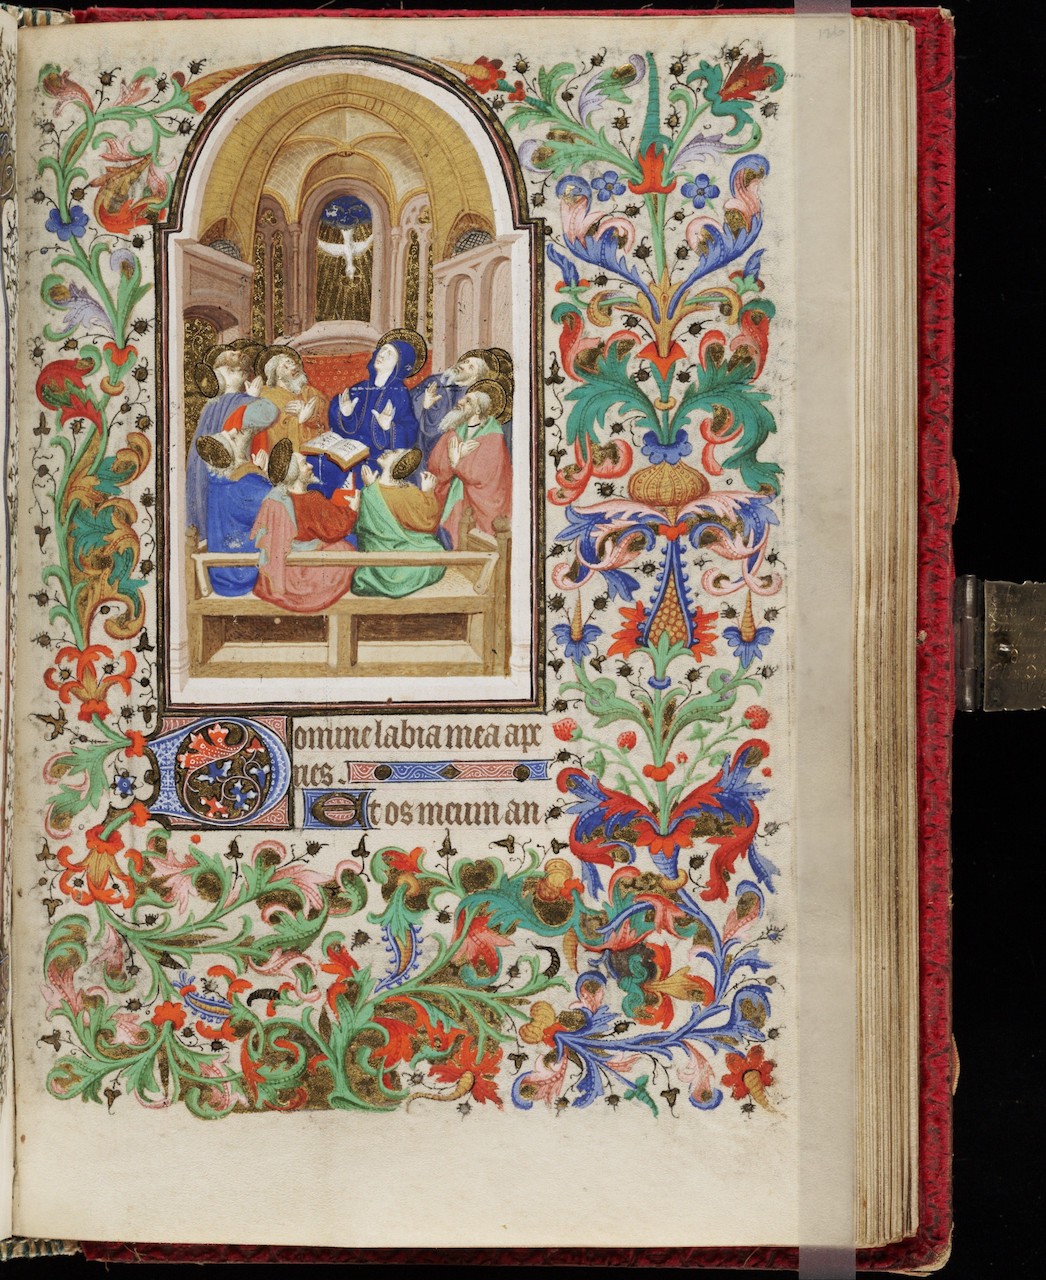 Domine labia mea ape
ries
Et os meum an